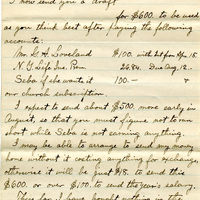 I now send you a draft
for $600. to be used
as you think best after paying the following
accounts:
Mr. S. H. Loveland $100. with int from Apr. 15.
N.Y. Life Ins. Prem 26.84. Due Aug. 12.
Seba if she wants it 100.—
our church subscription.
I expect to send about $500. more early in
August, so that you must figure not to run
short while Seba is not earning anything.
I may be able to arrange to send my money
home without it costing anything for exchange,
otherwise it will be quite $18. to send this
$600. or over $100. to send the year's salary.
Thus far I have bought nothing in the